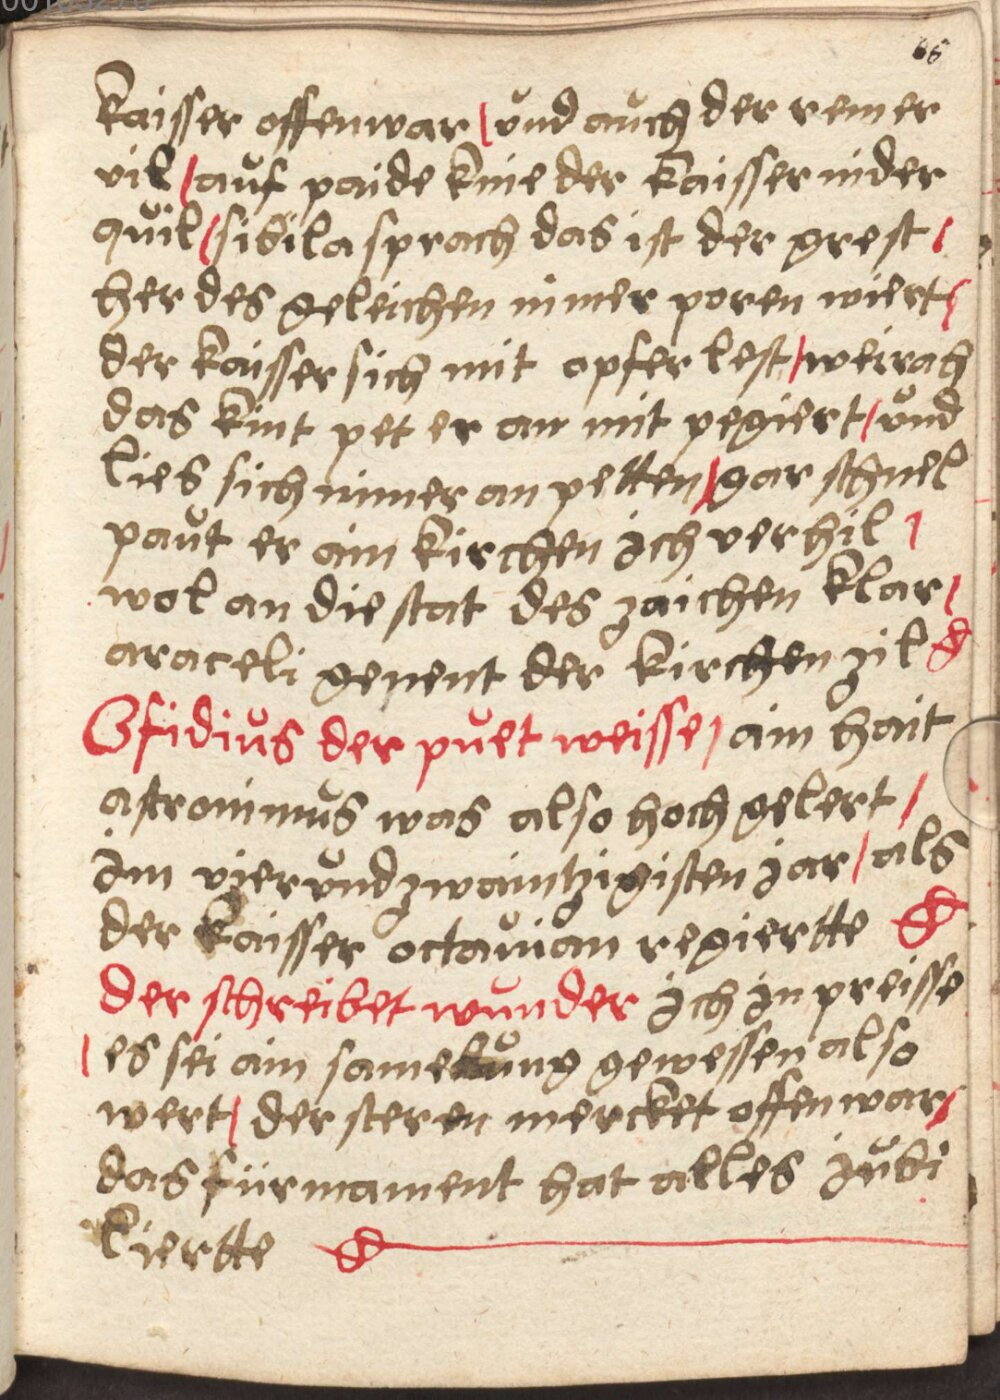 66
kaisser offenwar / vnd auch der remer
vil / auf paide knie der kaisser nider
quil / sibila sprach das ist der grest /
her des geleichen nimer poren wiert /
der kaisser sich mit opfer lest / weirach
das kint pet er an mit pegiert / vnd
lies sich nimer an petten / gar schnel
paut er ain kirchen jch verhil /
wol an die stat des zaichen klar /
araceli genent der kirchen zil
Ofidius der puet weisse / ain hait
astronimus was also hoch gelert /
jm vier vnd zwaintzigisten jar / als
der kaisser octauian regiertte
der schreibet wunder jch jn preisse
/ es sei ain samelung gewessen also
wert / der steren mercket offenwar /
das fürmament hat alles jubi
liertte